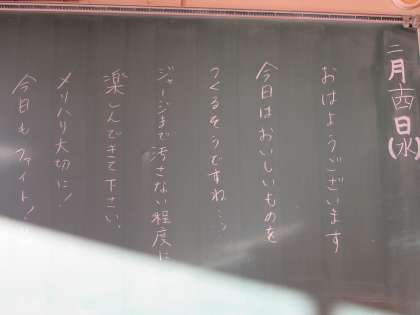 二月十四日(水)
おはようございます
今日はおいしいものを
つくるそうですね…
ジャージまで汚さない程度に
楽しんできて下さい。
メリハリ大切に!
今日もファイト!